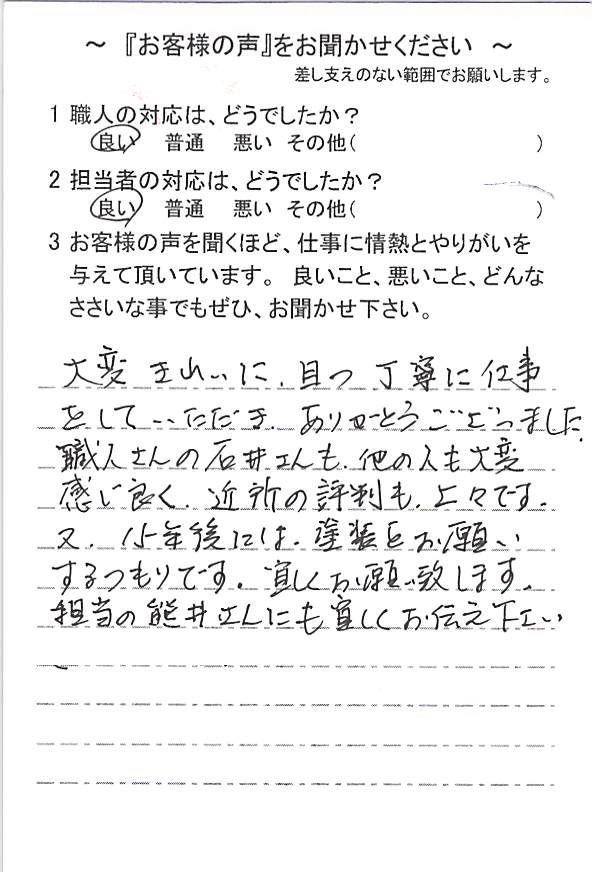 ～ 『お客様の声』をお聞かせください ～
差し支えのない範囲でお願いします。
1 職人の対応は、どうでしたか？
良い 普通 悪い その他( )
2 担当者の対応は、どうでしたか？
良い 普通 悪い その他( )
3 お客様の声を聞くほど、仕事に情熱とやりがいを
与えて頂いています。 良いこと、悪いこと、どんな
ささいな事でもぜひ、お聞かせ下さい。
大変 きれいに、且つ 丁寧に仕事
をして いただき、ありがとうございました。
職人さんの石井さんも、他の人も大変
感じ良く、近所の評判も、上々です。
又、15年後には、塗装をお願い
するつもりです。宜しくお願い致します。
担当の能井さんにも宜しくお伝え下さい